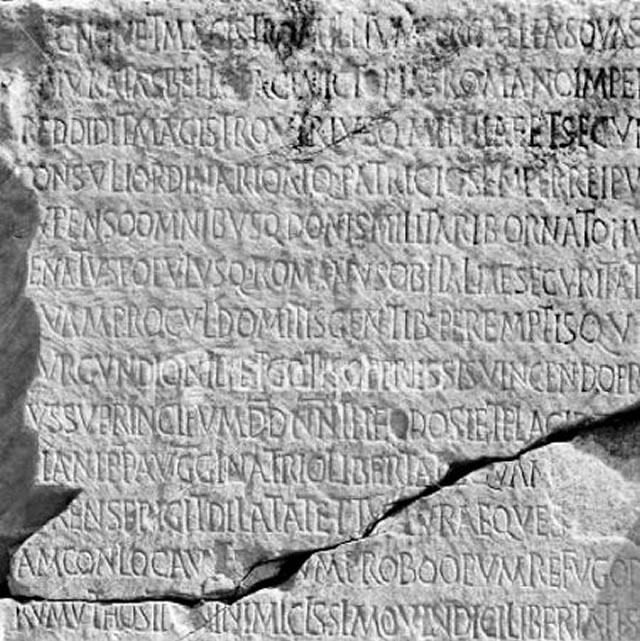 MAGISTRO MILITVM PER GALLIAS QVAS
IVRATAS BELLO PACE VICTORIAS ROMANO IMPE
REDDIDIT MAGISTRO VTRIVSQ MILITIAE ET SECVN
ONSVLI ORDINARIO ATQ PATRICIO SEMPER REI PV
PENSO OMNIBVSQ DONIS MILITARIB ORNATO HV
ENATVS POPVLVSQ ROMANVS OB ITALIAE SECVRITA
VAM PROCVL DOMITIS GENTIB PEREMPTISQV
VRGVNDIONIB ET GOTIS OPPRESSIS VINCENDO PR
VSSV PRINCIPVM DD NN THEODOSI ET PLACIDI
IANI PP AVGG IN ATRIO LIBERTATIS QVAM
RENS ERIGIT DILATAT ET TVETVR AEQVE S
AM CONLOCAVIT MORVM PROBO OPVM REFVGO
RVM VT HOSTIVM INIMICISSIMO VINDICI LIBERTATIS